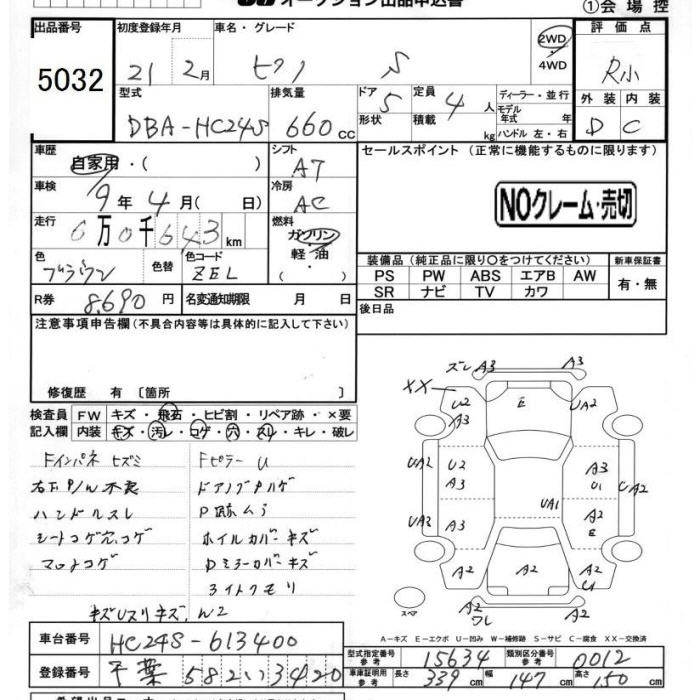 オークション出品申込書
①会場控
出品番号 5032
初度登録年月 21 2月
車名・グレード ピノ S
2WD・4WD
評価点 R小
外装 D 内装 C
型式 DBA-HC24S
排気量 660cc
ドア 5 形状
定員 4人 積載 kg
ディーラー・並行
モデル年式 年
ハンドル 左・右
車歴 自家用・( )
シフト AT
セールスポイント(正常に機能するものに限ります)
車検 9年4月( 日)
冷房 AC
NOクレーム・売切
走行 6万0千643km
燃料 ガソリン・軽油・( )
色 ブラウン 色替
色コード ZEL
装備品(純正品に限り○をつけてください)
新車保証書
PS PW ABS エアB AW
有・無
SR ナビ TV カワ
R券 8,690円
名変通知期限 月 日
後日品
注意事項申告欄(不具合内容等は具体的に記入して下さい)
修復歴 有〔箇所 〕
検査員記入欄
FW キズ・飛石・ヒビ割・リペア跡・×要
内装 キズ・汚レ・コゲ・穴・スレ・キレ・破レ
Fインパネ ヒズミ
Fピラー U
右下P/W不良
ハンドルスレ
シートコゲ穴、コゲ
ホイルカバーキズ
マットコゲ
Dミラーカバーキズ
キズUスリキズ、W2
ズレ A3 A3
XX
U2 E UA2
UA2 U2 A3 A3 U1 UA2
UA2 A3 UA1 A2 E
A2 A2 A2 U1
スペア
A2 ワレ A2
A-キズ E-エクボ U-凹み W-補修跡 S-サビ C-腐食 XX-交換済
車台番号 HC24S-613400
登録番号 千葉 582 い 3420
型式指定番号 参考 15634
類別区分番号 参考 0012
車庫証明用 参考 長さ 339cm 幅 147cm 高さ 150cm